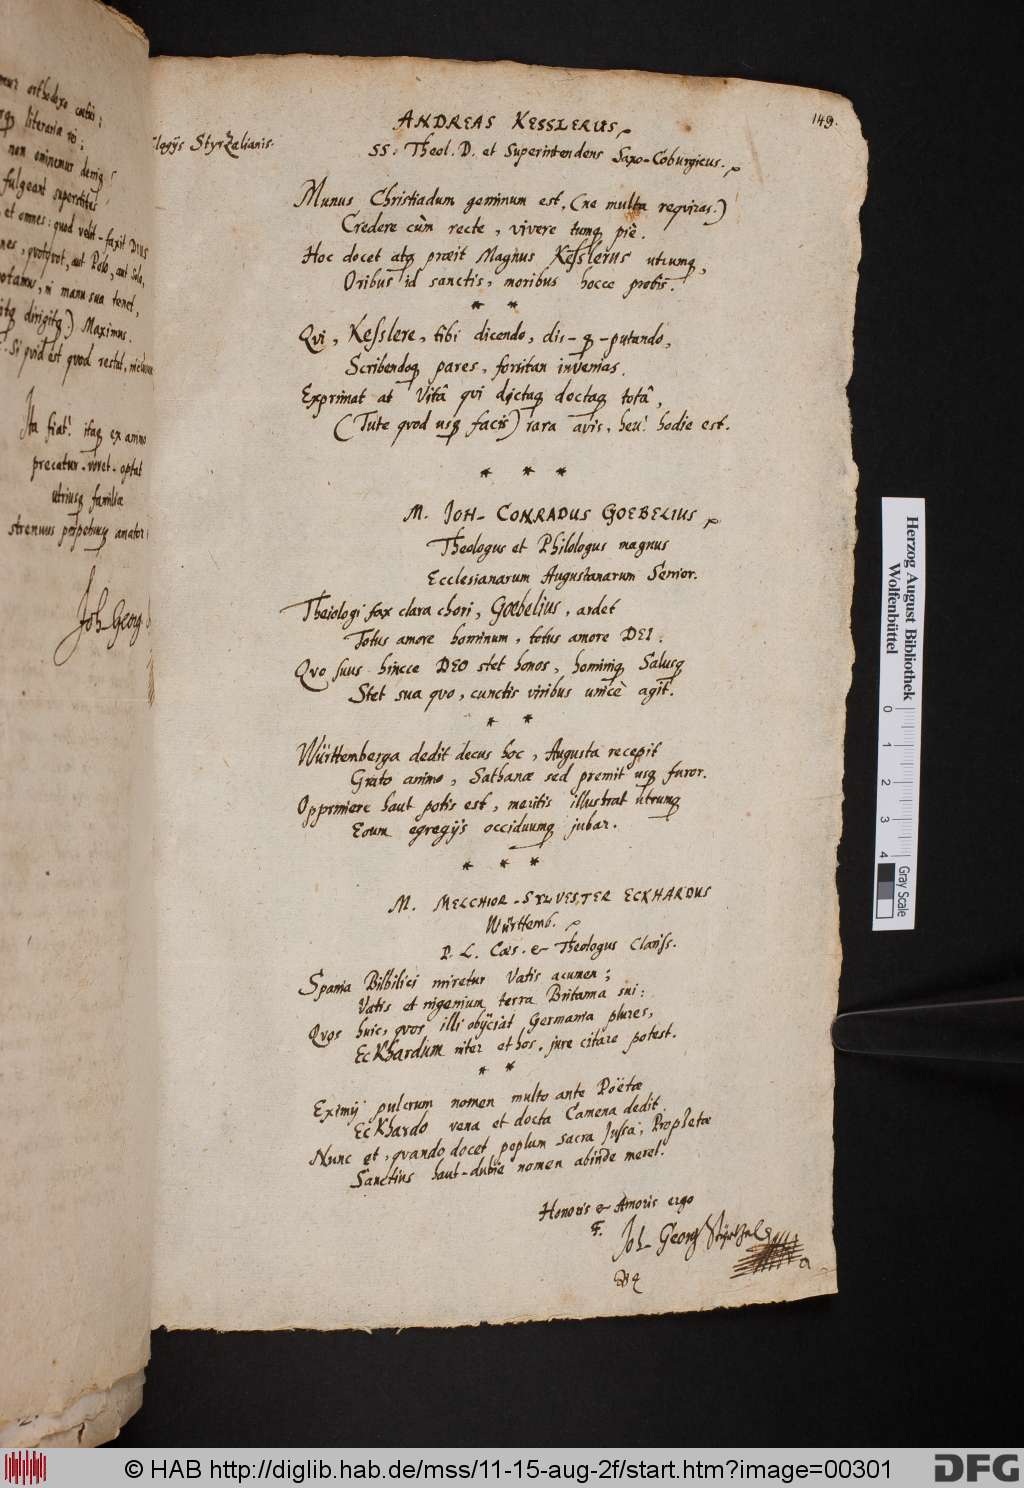 orthodoxo cœtui:
literaria rei;
non ominemur deniq
fulgeant superstites
et omnes: quod velit-faxit DEUS
quotquot, aut Polo, aut Solo,
manu sua tenet,
dirigitq.) Maximus.
Si quid est quod restat,
Ita fiat! itaq ex animo
precatur. vovet. optat
utriusq familiæ
strenuus perpetuuq amator
Joh-Georg
149.
Elogijs Styrzelianis.
ANDREAS KESSLERUS,
SS: Theol. D. et Superintendens Saxo-Coburgicus.
Munus Christiadum geminum est, (ne multa requiras.)
Credere cùm recte, vivere tumq piè.
Hoc docet atq præit Magnus Kesslerus utrumq,
Oribus id sanctis, moribus hocce probis.
* *
Qui, Kesslere, tibi dicendo, dis-q-putando,
Scribendoq pares, forsitan invenias.
Exprimat at Vitâ qui dictaq doctaq totâ,
(Tute quod usq facis) rara avis, heu! hodie est.
* * *
M. JOH-CONRADUS GOEBELIUS,
Theologus et Philologus magnus
Ecclesianarum Augustanarum Senior.
Theiologi fax clara chori, Gœbelius, ardet
Totus amore hominum, totus amore DEI:
Quo suus hincce DEO stet honos, hominiq Salusq
Stet sua quo, cunctis viribus unicè agit.
* *
Württemberga dedit decus hoc, Augusta recepit
Grato animo, Sathanæ sed premit usq furor.
Opprimere haut potis est, meritis illustrat utrumq
Eoum egregijs occiduumq jubar.
* * *
M. MELCHIOR-SYLVESTER ECKHARDUS
Württemb.
P. L. Cæs. & Theologus Clariss.
Spania Bilbilici miretur Vatis acumen;
Vatis et ingenium terra Britanna sui:
Quos huic, quos illi objiciat Germania plures,
EcKhardum inter et hos, jure citare potest.
* *
Eximij pulcrum nomen multo ante Poëtæ
EcKhardo vena et docta Camena dedit.
Nunc et, quando docet poplum sacra Jussa, Prophetæ
Sanctius haut-dubiè nomen abinde meret.
Honoris & Amoris ergo
F.
Joh-Georg Styrtzel
Herzog August Bibliothek
Wolfenbüttel
0 1 2 3 4
Gray Scale
© HAB http://diglib.hab.de/mss/11-15-aug-2f/start.htm?image=00301
DFG